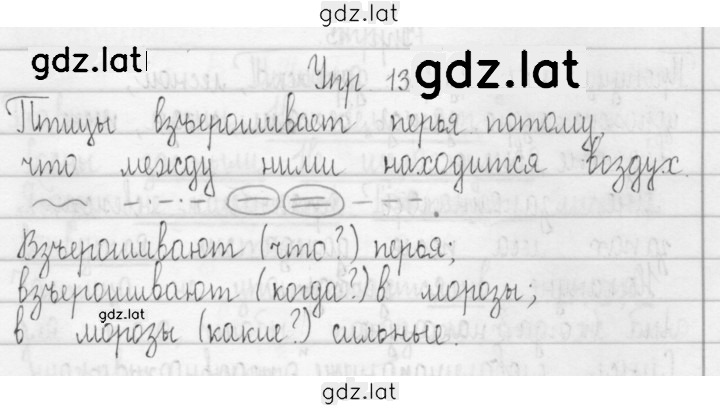 gdz.lat
gdz.lat
Упр 13 gdz.lat
Птицы взъерошивает перья потому,
что между ними находится воздух.
Взъерошивают (что?) перья;
взъерошивают (когда?) в морозы;
gdz.lat
в морозы (какие?) сильные.
gdz.lat